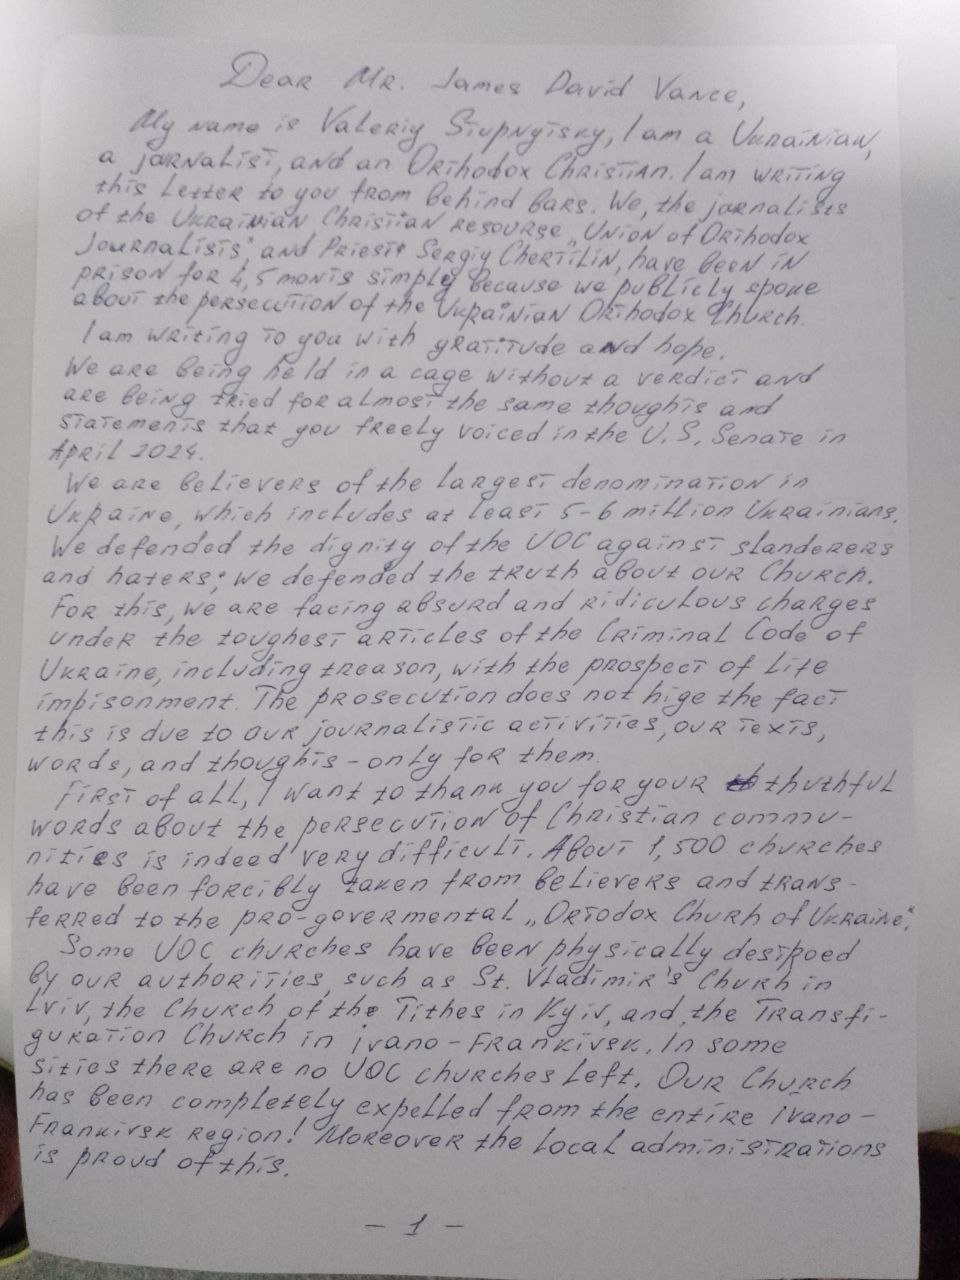 Dear Mr. James David Vance,
My name is Valeriy Stupnytsky, I am a Ukrainian,
a jornalist, and an Orthodox Christian. I am writing
this letter to you from behind bars. We, the jornalists
of the Ukrainian Christian resourse „Union of Orthodox
Journalists", and Priest Sergiy Chertilin, have been in
prison for 4,5 monts simply because we publicly spoke
about the persecution of the Ukrainian Orthodox Church.
I am writing to you with gratitude and hope.
We are being held in a cage without a verdict and
are being tried for almost the same thoughts and
statements that you freely voiced in the U.S. Senate in
April 2024.
We are believers of the largest denomination in
Ukraine, which includes at least 5-6 million Ukrainians.
We defended the dignity of the UOC against slanderers
and haters; we defended the truth about our Church.
For this, we are facing absurd and ridiculous charges
under the toughest articles of the Criminal Code of
Ukraine, including treason, with the prospect of life
impisonment. The prosecution does not hige the fact
this is due to our journalistic activities, our texts,
words, and thoughts - only for them.
First of all, I want to thank you for your thuthful
words about the persecution of Christian commu-
nities is indeed very difficult. About 1,500 churches
have been forcibly taken from believers and trans-
ferred to the pro-govermental „Ortodox Churh of Ukraine".
Some UOC churches have been physically destroed
by our authorities, such as St. Vladimir's Churh in
Lviv, the Church of the Tithes in Kyiv, and the Transfi-
guration Church in ivano-Frankivsk. In some
sities there are no UOC churches left. Our Church
has been completely expelled from the entire ivano-
Frankivsk region! Moreover the local administrations
is proud of this.
- 1 -